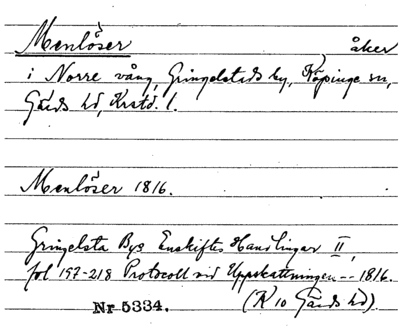 Menlöser åker
i Norre vång, Gringelstads by, Köpinge sn,
Gärds hd, Krstd. l.
Menlöser 1816.
Gringelsta Bys Enskiftes Handlingar II,
fol 197-218 Protocoll vid Uppskattningen -- 1816.
Nr 5334. (K 10 Gärds hd).